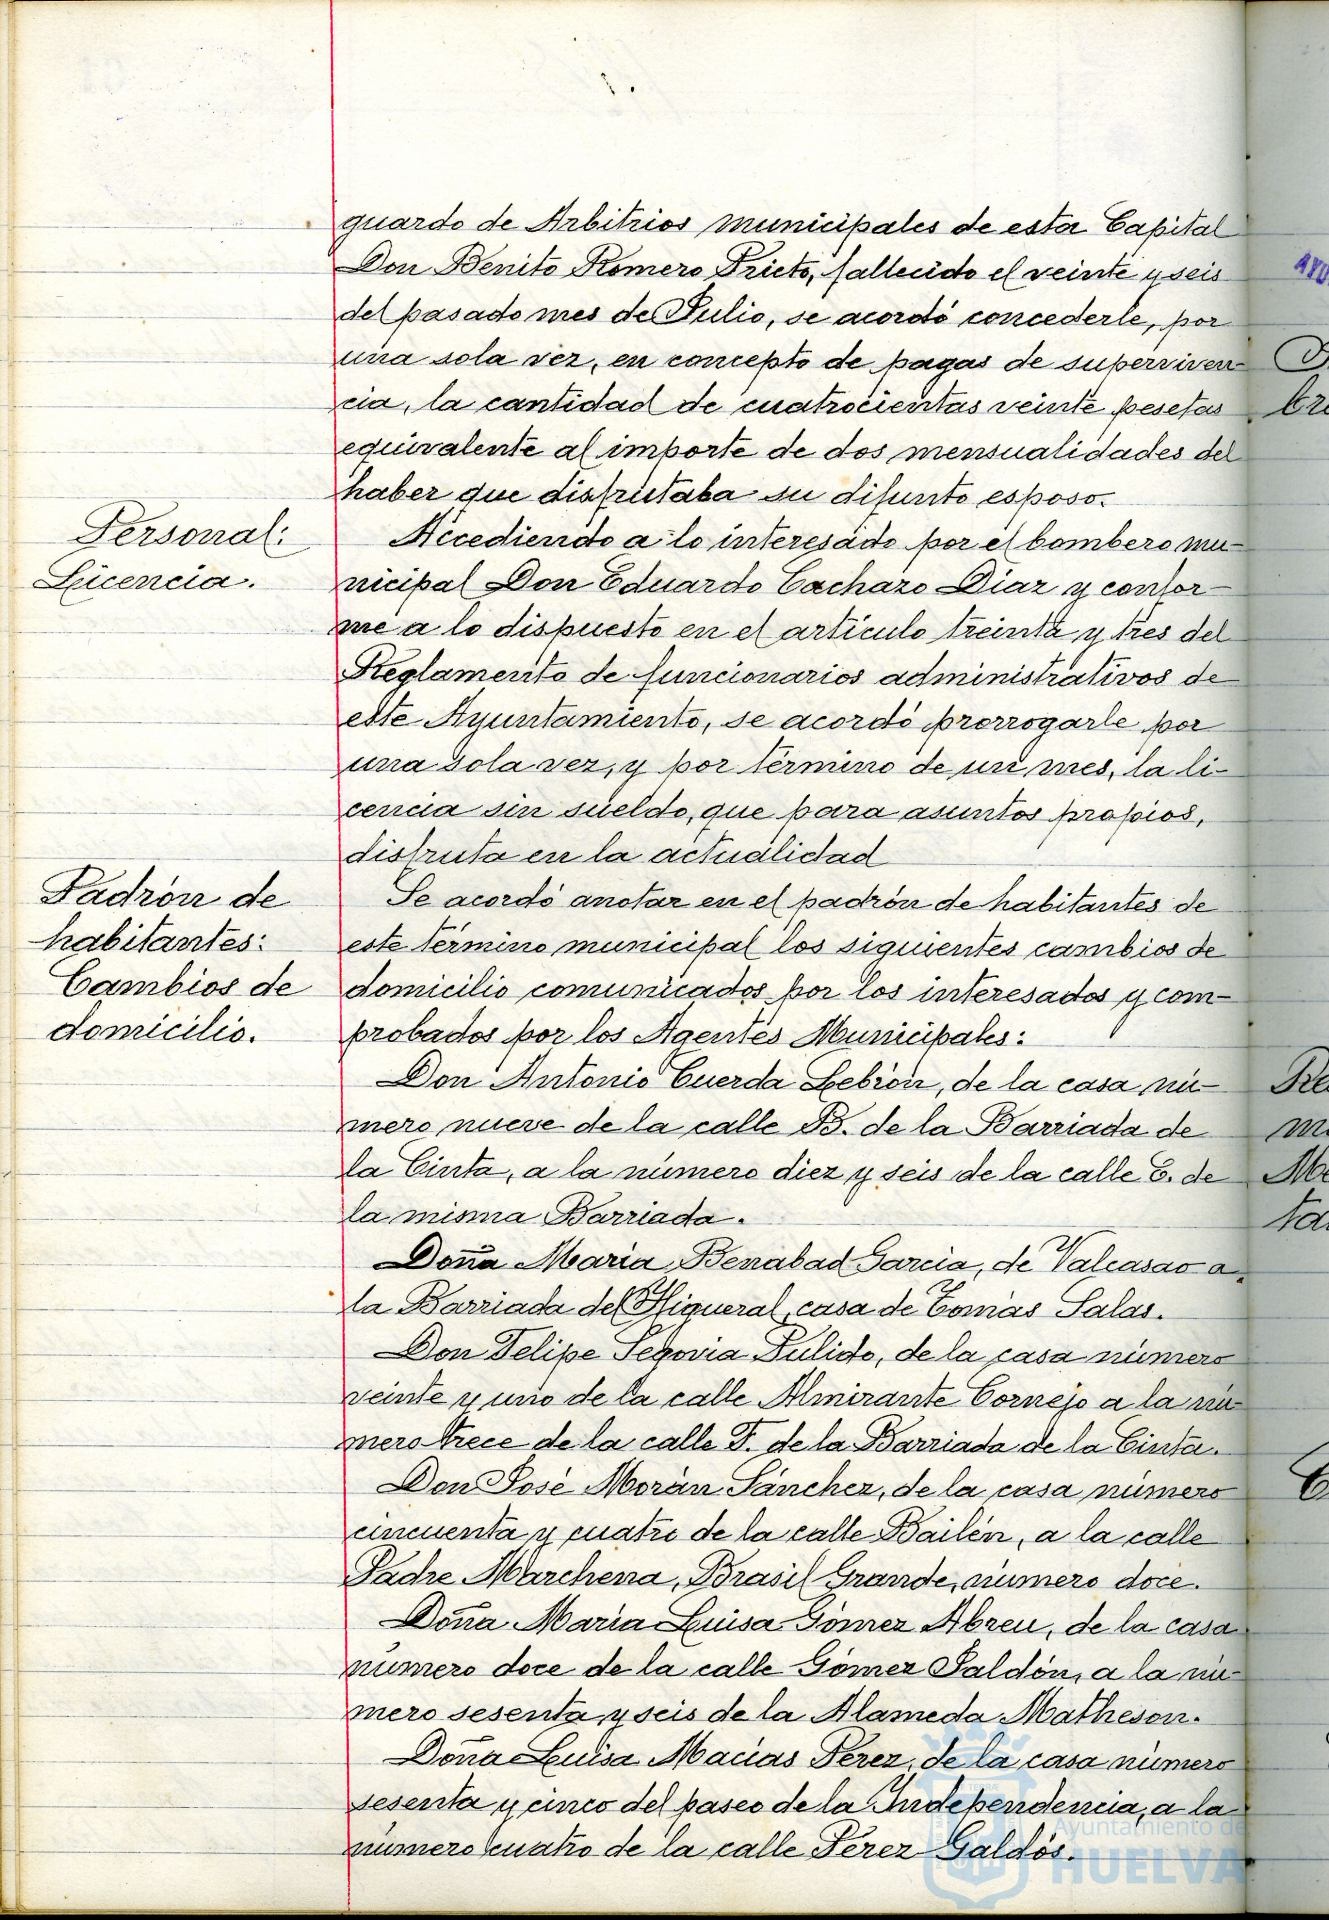 guardo de Arbitrios municipales de esta Capital
Don Benito Romero Prieto, fallecido el veinte y seis
del pasado mes de Julio, se acordó concederle, por
una sola vez, en concepto de pagas de superviven-
cia, la cantidad de cuatrocientas veinte pesetas
equivalente al importe de dos mensualidades del
haber que disfrutaba su difunto esposo.
Personal:
Licencia.
Accediendo a lo interesado por el bombero mu-
nicipal Don Eduardo Cachazo Díaz y confor-
me a lo dispuesto en el artículo treinta y tres del
Reglamento de funcionarios administrativos de
este Ayuntamiento, se acordó prorrogarle por
una sola vez, y por término de un mes, la li-
cencia sin sueldo, que para asuntos propios,
disfruta en la actualidad
Padrón de
habitantes:
Cambios de
domicilio.
Se acordó anotar en el padrón de habitantes de
este término municipal los siguientes cambios de
domicilio comunicados por los interesados y com-
probados por los Agentes Municipales:
Don Antonio Cuerda Lebrón, de la casa nú-
mero nueve de la calle B. de la Barriada de
la Cinta, a la número diez y seis de la calle C. de
la misma Barriada.
Doña María Benabad García, de Valcasao a
la Barriada del Higueral, casa de Tomás Salas.
Don Felipe Segovia Pulido, de la casa número
veinte y uno de la calle Almirante Cornejo a la nú-
mero trece de la calle F. de la Barriada de la Cinta.
Don José Morán Sánchez, de la casa número
cincuenta y cuatro de la calle Bailén, a la calle
Padre Marchena, Brasil Grande, número doce.
Doña María Luisa Gómez Abreu, de la casa
número doce de la calle Gómez Jaldón, a la nú-
mero sesenta y seis de la Alameda Matheson.
Doña Luisa Macías Pérez, de la casa número
sesenta y cinco del paseo de la Independencia, a la
número cuatro de la calle Pérez Galdós.
Ayuntamiento de
HUELVA